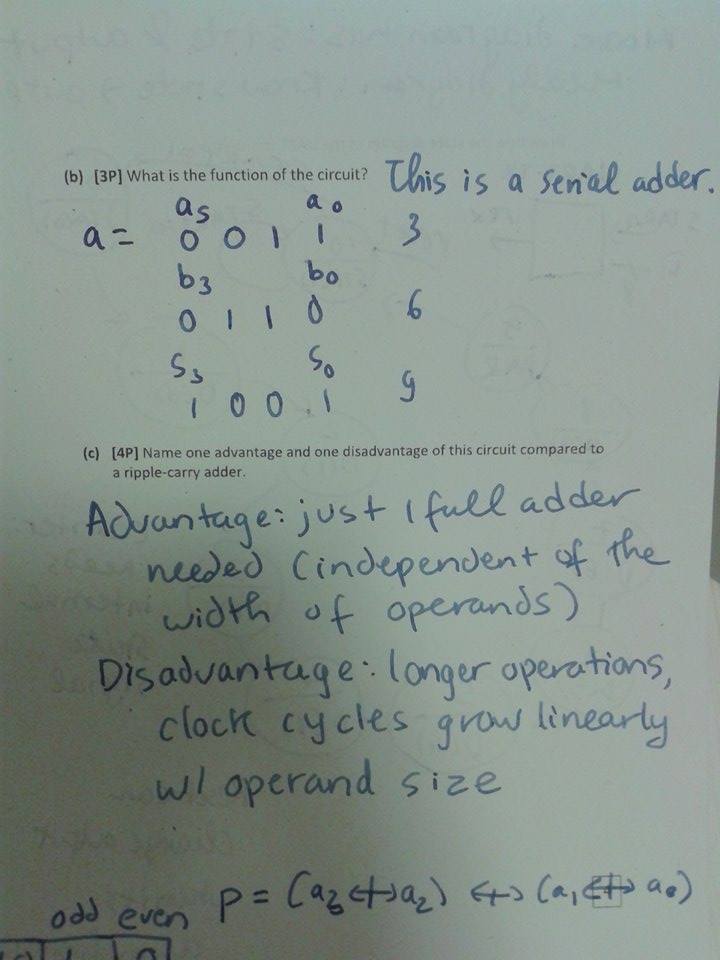 (b) [3P] What is the function of the circuit? This is a serial adder.
a5 a0
a = 0 0 1 1 3
b3 b0
0 1 1 0 6
S3 S0
1 0 0 1 9
(c) [4P] Name one advantage and one disadvantage of this circuit compared to
a ripple-carry adder.
Advantage: just 1 full adder
needed (independent of the
width of operands)
Disadvantage: longer operations,
clock cycles grow linearly
w/ operand size
odd even P = (a3 ↔ a2) ↔ (a1 ↔ a0)